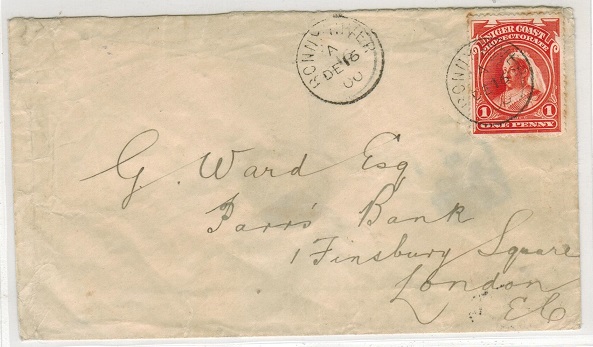 BONNY RIVER
A
DE 16
00
NIGER COAST
PROTECTORATE
1 1
ONE PENNY
G. Ward Esq
Parr's Bank
1 Finsbury Square
London
E.C